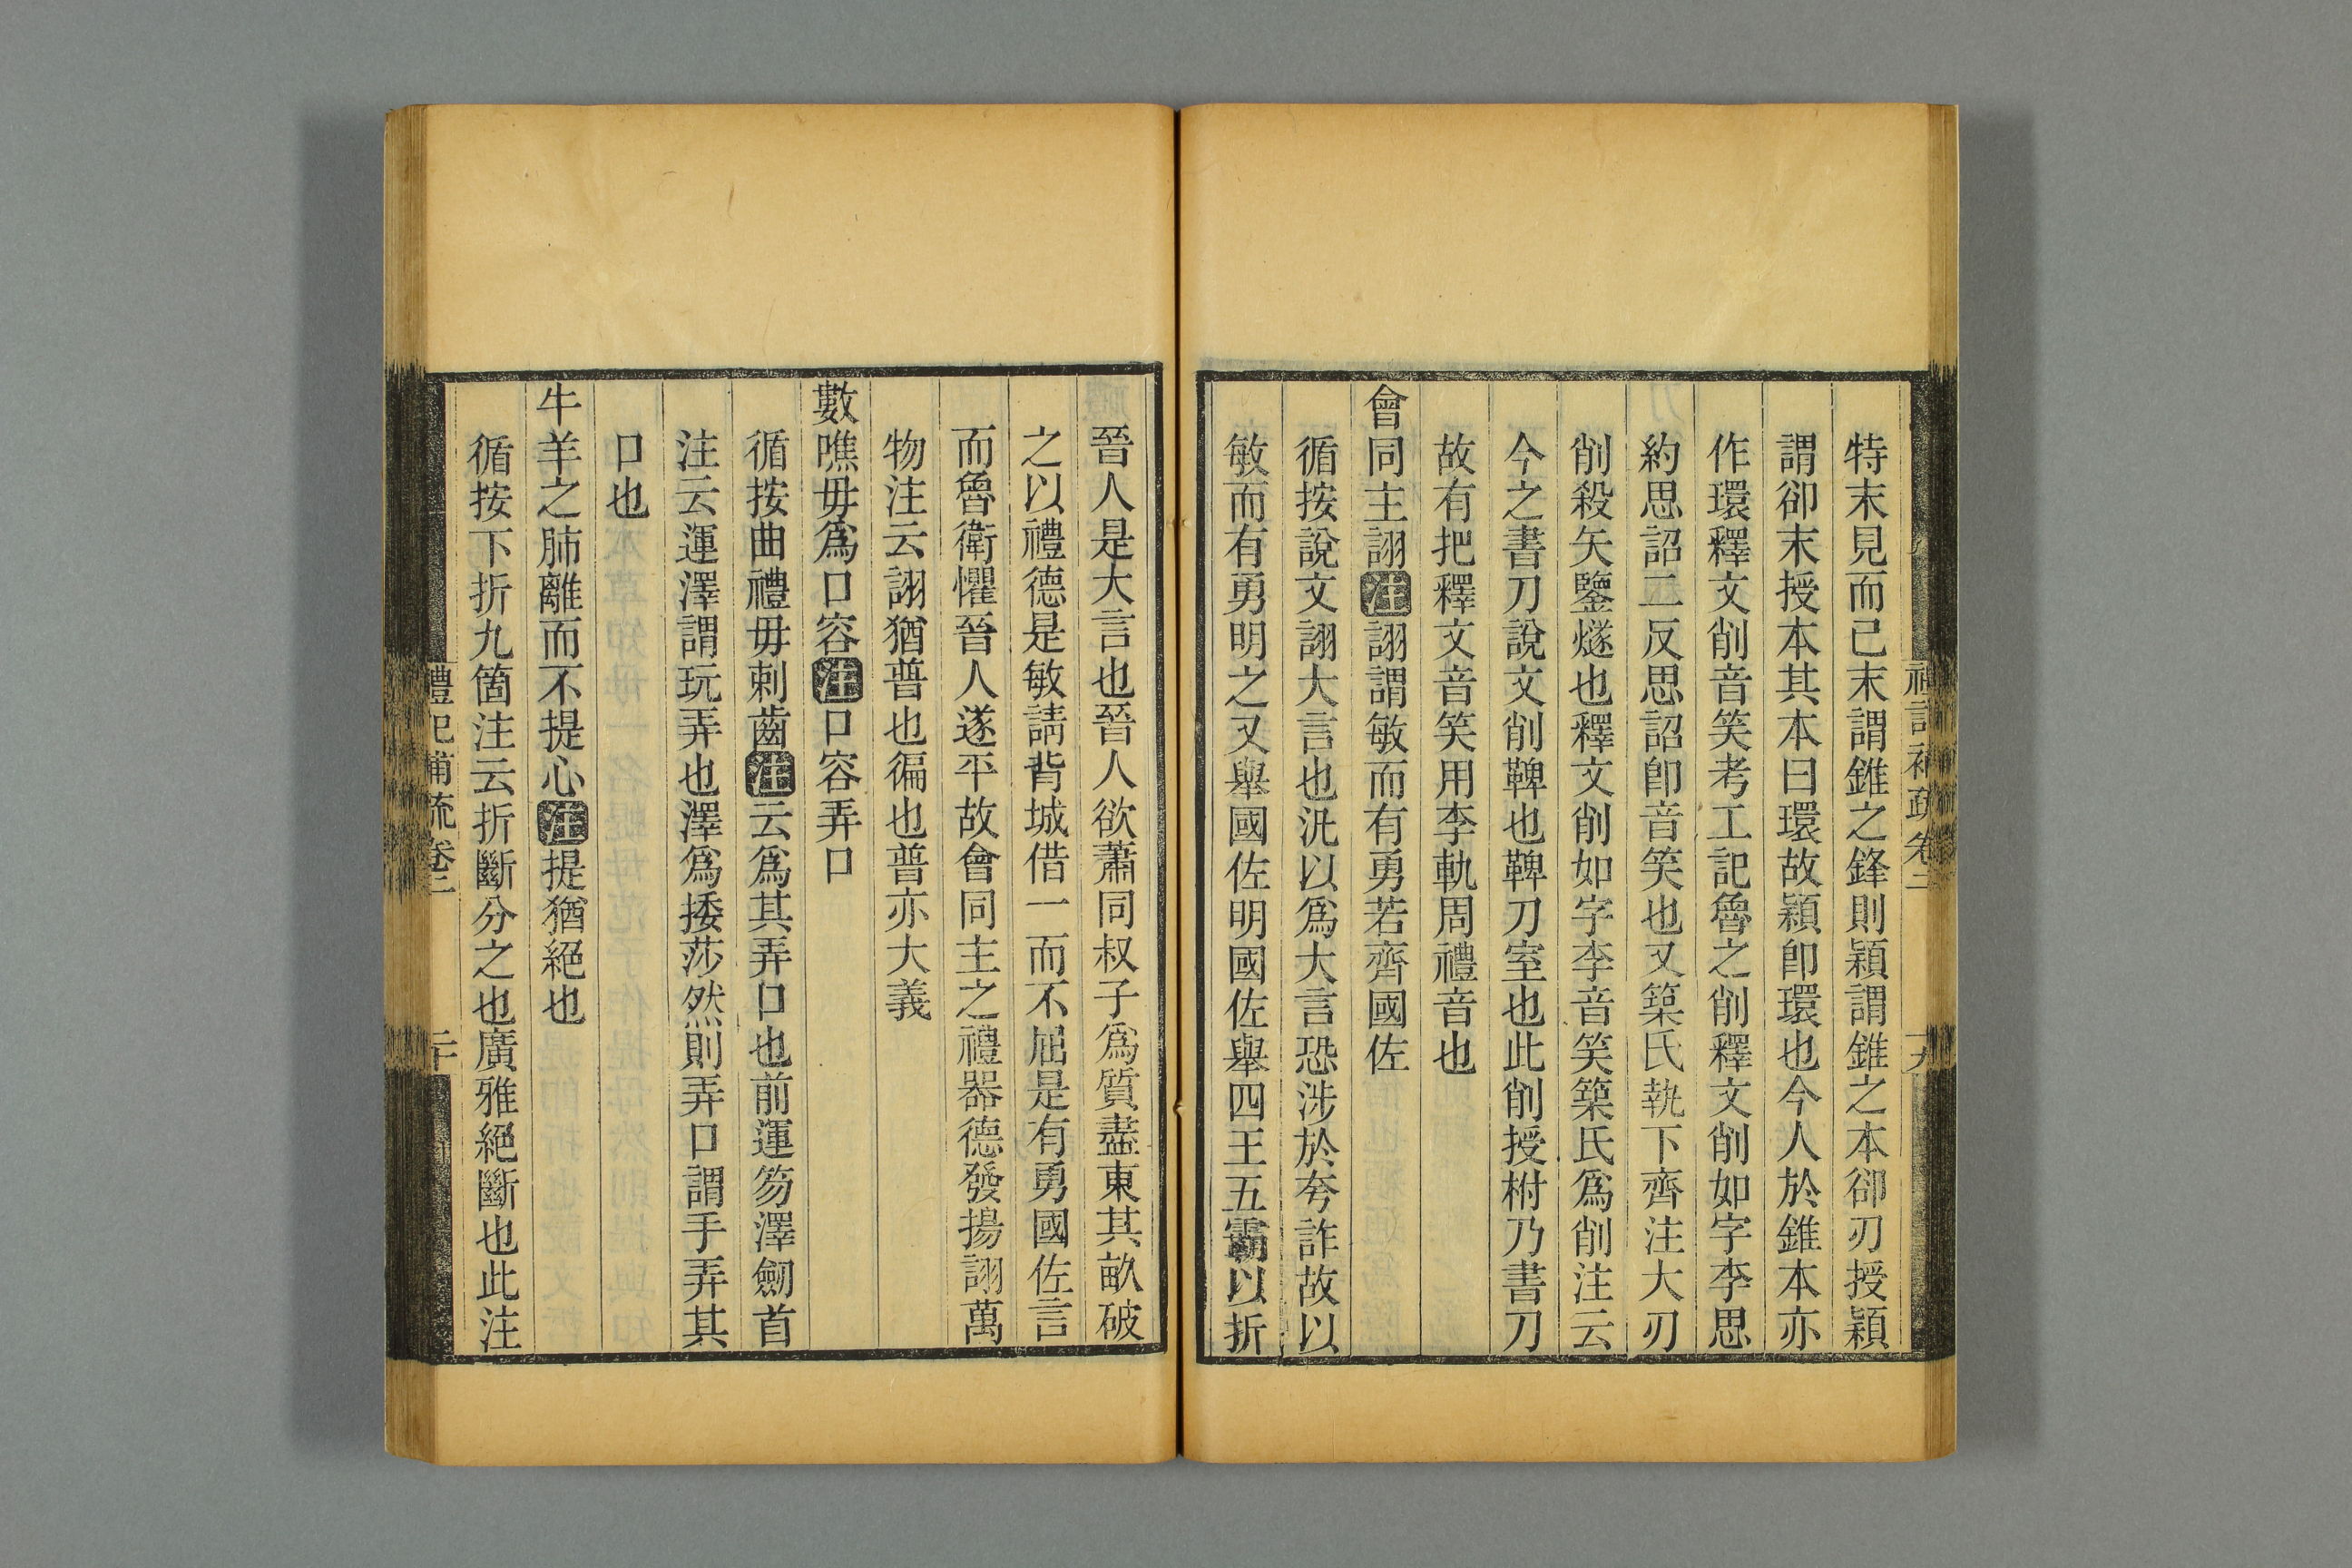 特末見而已末謂錐之鋒則穎謂錐之本卻刃授穎
謂卻末授本其本曰環故穎卽環也今人於錐本亦
作環釋文削音笑考工記魯之削釋文削如字李思
約思詔二反思詔卽音笑也又築氏執下齊注大刃
削殺矢鑒燧也釋文削如字李音笑築氏爲削注云
今之書刀說文削鞞也鞞刀室也此削授柎乃書刀
故有把釋文音笑用李軌周禮音也
會同主詡注詡謂敏而有勇若齊國佐
循按說文詡大言也沇以爲大言恐涉於夸詐故以
敏而有勇明之又舉國佐明國佐舉四王五霸以折
禮記補疏卷二
十九
晉人是大言也晉人欲蕭同叔子爲質盡東其畝破
之以禮德是敏請背城借一而不屈是有勇國佐言
而魯衛懼晉人遂平故會同主之禮器德發揚詡萬
物注云詡猶普也徧也普亦大義
數噍毋爲口容注口容弄口
循按曲禮毋刺齒注云爲其弄口也前運笏澤劒首
注云運澤謂玩弄也澤爲捼莎然則弄口謂手弄其
口也
牛羊之肺離而不提心注提猶絕也
循按下折九箇注云折斷分之也廣雅絕斷也此注
禮記補疏卷二
二十